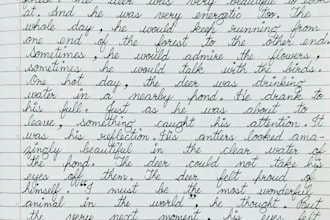 The deer was very beautiful to look
at. And he was very energetic too. The
whole day, he would keep running from
one end of the forest to the other end.
Sometimes, he would admire the flowers,
sometimes he would talk with the birds.
One hot day, the deer was drinking
water in a nearby pond. He drank to
his full. Just as he was about to
leave, something caught his attention. It
was his reflection. His antlers looked ama-
zingly beautiful in the clear water of
the pond. The deer could not take his
eyes off them. The deer felt proud of
himself. "I must be the most wonderful
animal in the world", he thought. But
the very next moment, his eyes fell